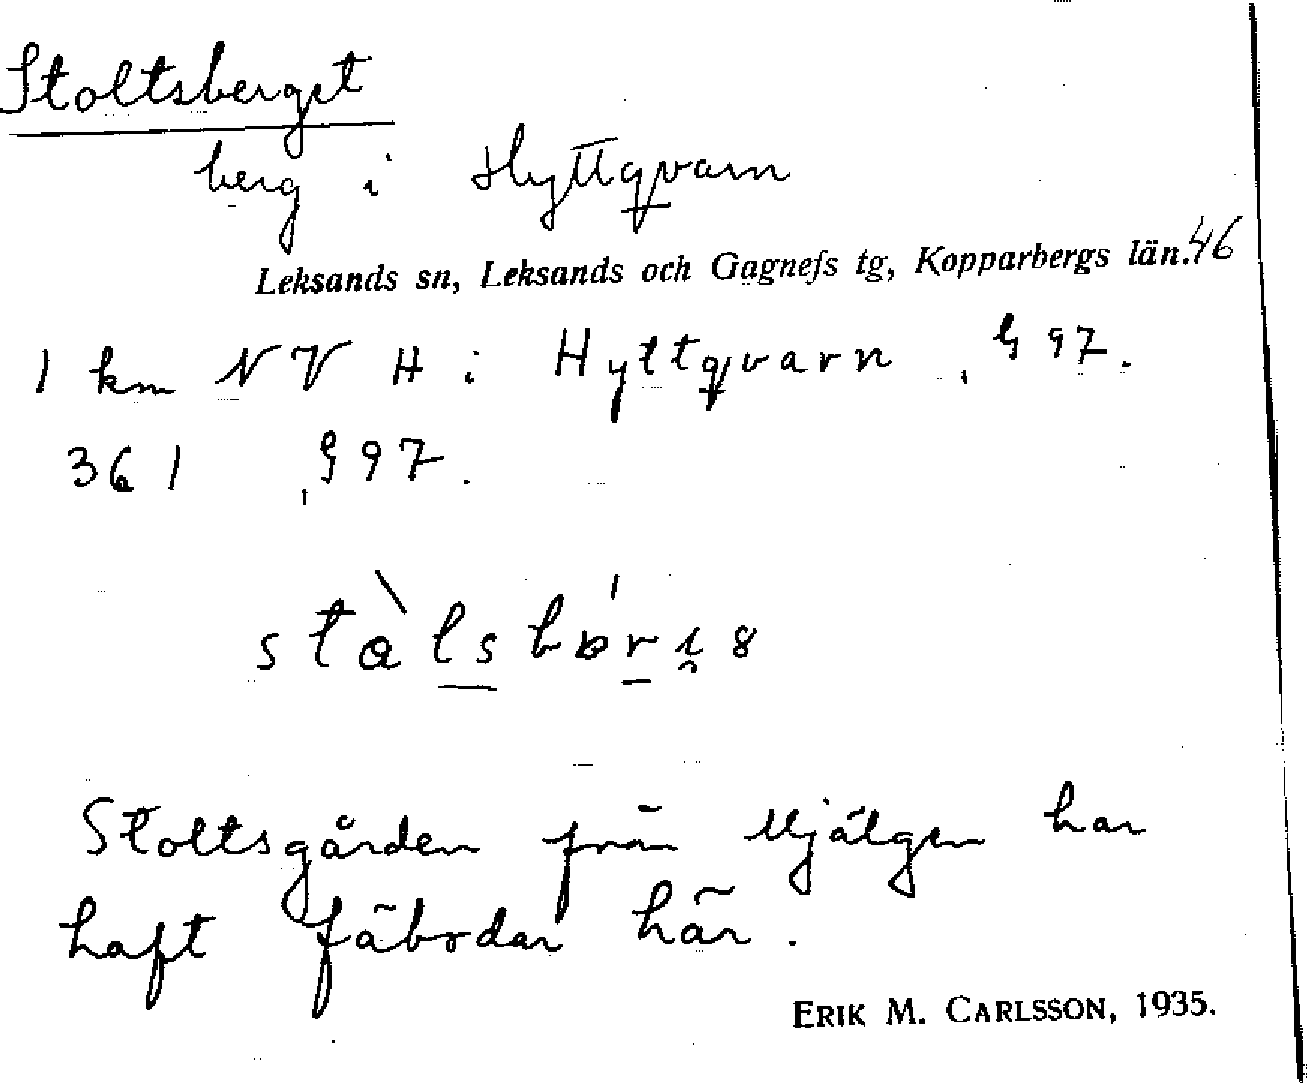 Stoltsberget
berg i Hyttqvarn
Leksands sn, Leksands och Gagnefs tg, Kopparbergs län. 46
1 km NV H i Hyttqvarn, § 97.
361, § 97.
Stoltsgården från Mjälgen har
haft fäbodar här.
ERIK M. CARLSSON, 1935.